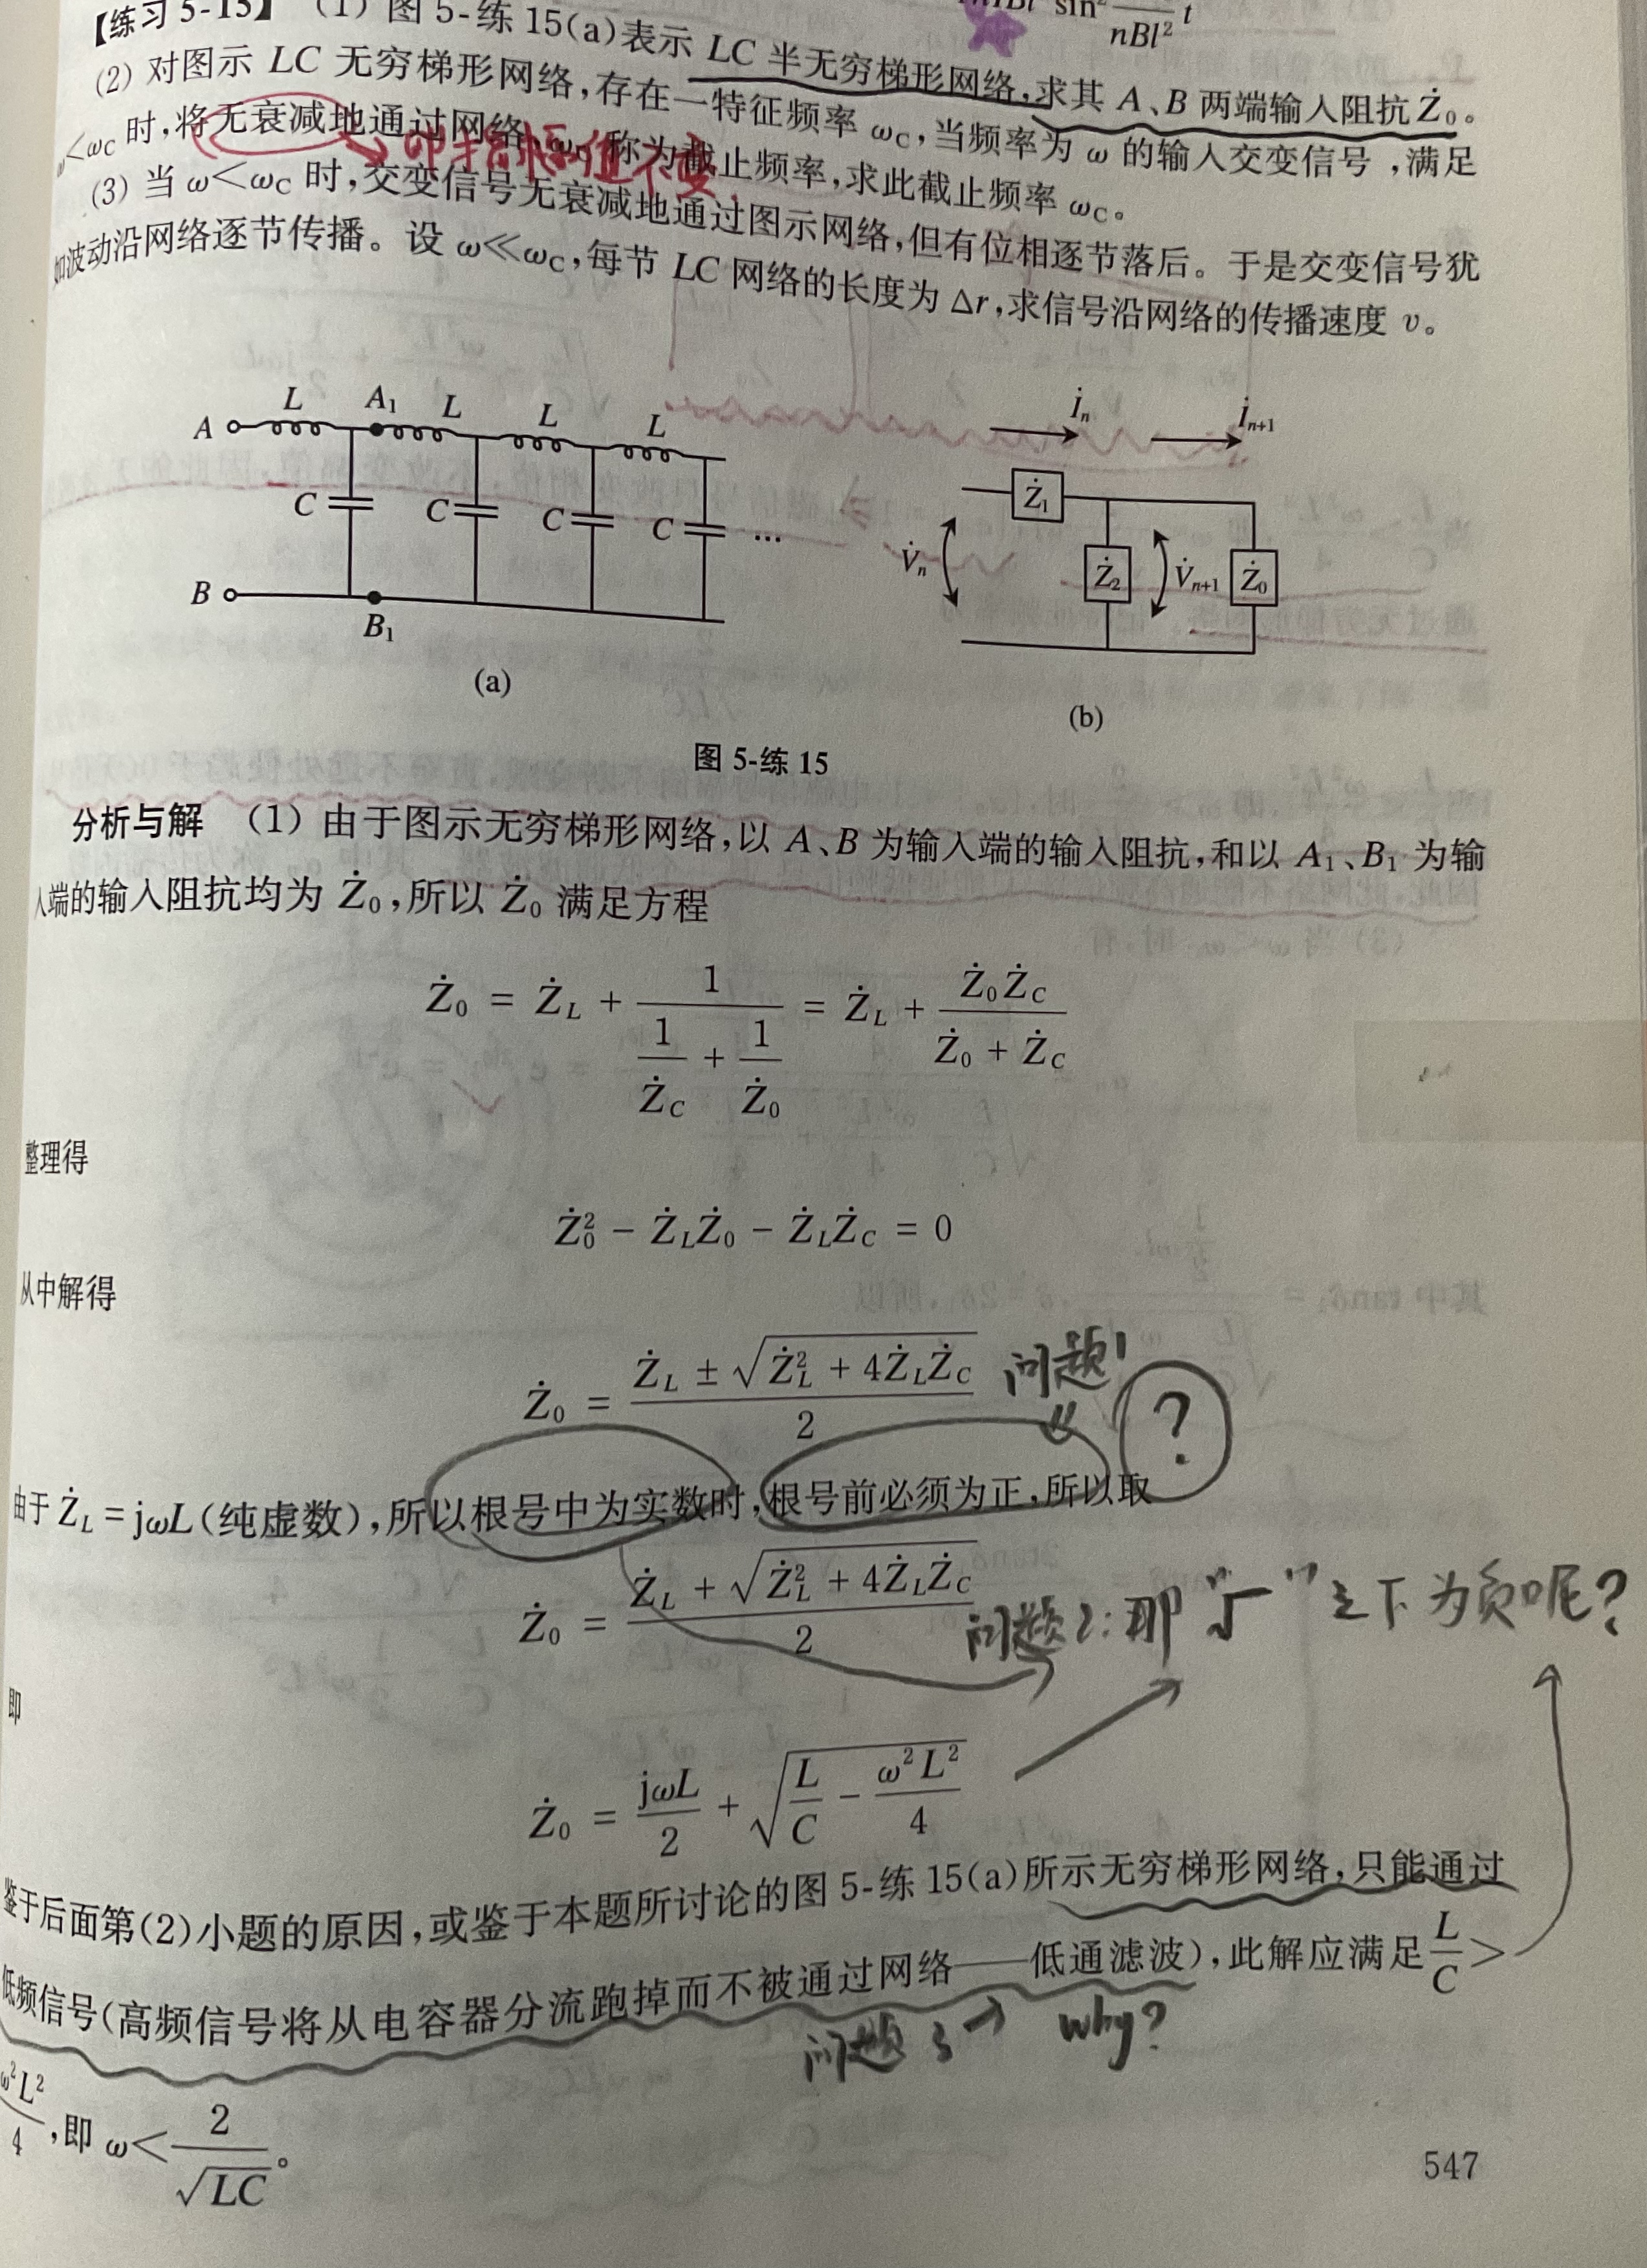 【练习 5-15】 (1) 图 5-练 15(a)表示 LC 半无穷梯形网络,求其 A、B 两端输入阻抗 Ż₀。
sin² / nBl² t
(2) 对图示 LC 无穷梯形网络,存在一特征频率 ω_C,当频率为 ω 的输入交变信号,满足
ω<ω_C 时,将无衰减地通过网络,ω_C 称为截止频率,求此截止频率 ω_C。
即指幅值不变.
(3) 当 ω<ω_C 时,交变信号无衰减地通过图示网络,但有位相逐节落后。于是交变信号犹
如波动沿网络逐节传播。设 ω≪ω_C,每节 LC 网络的长度为 Δr,求信号沿网络的传播速度 v。
A L A₁ L L L
C C C C …
B B₁
(a)
İₙ İₙ₊₁
Ż₁
V̇ₙ Ż₂ V̇ₙ₊₁ Ż₀
(b)
图 5-练 15
分析与解 (1) 由于图示无穷梯形网络,以 A、B 为输入端的输入阻抗,和以 A₁、B₁ 为输
入端的输入阻抗均为 Ż₀,所以 Ż₀ 满足方程
Ż₀ = Ż_L + 1/(1/Ż_C + 1/Ż₀) = Ż_L + Ż₀Ż_C/(Ż₀ + Ż_C)
整理得
Ż₀² − Ż_LŻ₀ − Ż_LŻ_C = 0
从中解得
Ż₀ = (Ż_L ± √(Ż_L² + 4Ż_LŻ_C))/2 问题1
?
由于 Ż_L = jωL(纯虚数),所以根号中为实数时,根号前必须为正,所以取
Ż₀ = (Ż_L + √(Ż_L² + 4Ż_LŻ_C))/2
问题2:那“√”之下为负呢?
即
Ż₀ = jωL/2 + √(L/C − ω²L²/4)
鉴于后面第(2)小题的原因,或鉴于本题所讨论的图 5-练 15(a)所示无穷梯形网络,只能通过
低频信号(高频信号将从电容器分流跑掉而不被通过网络——低通滤波),此解应满足 L/C >
问题3→ why?
ω²L²/4,即 ω< 2/√LC。
547